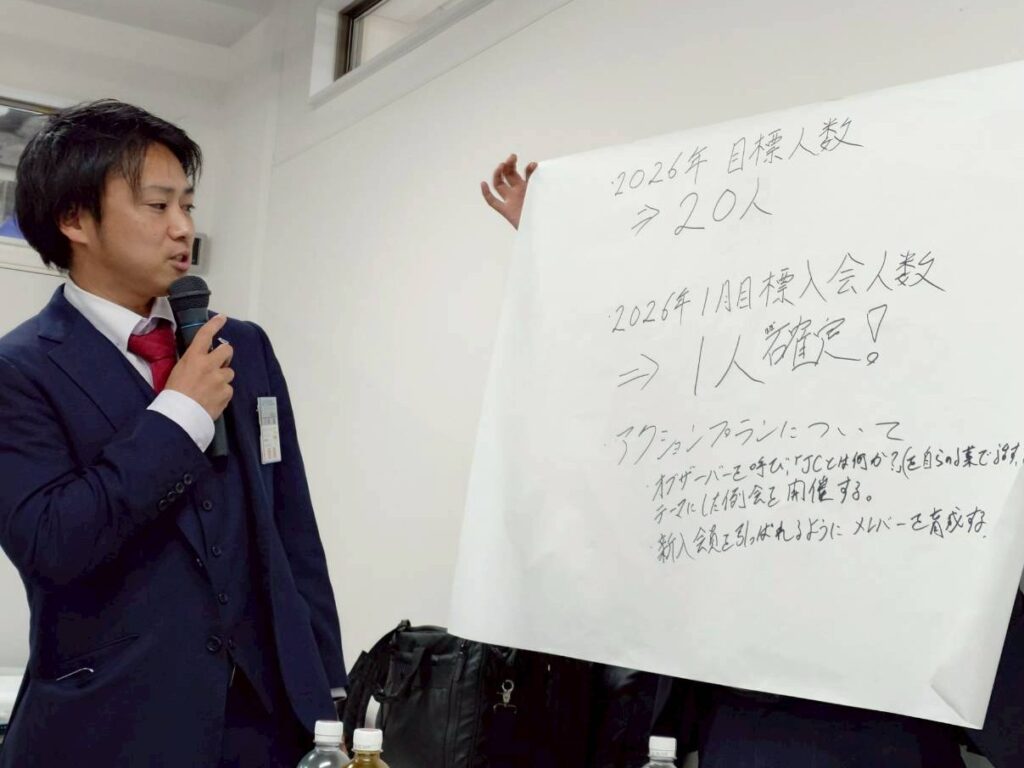 ・2026年 目標人数
⇒ 20人
・2026年1月目標入会人数
⇒ 1人 確定!
・アクションプランについて
・オブザーバーを呼び、「JCとは何か?」を自らの
テーマにした例会を開催する。
・新入会員を引っぱれるように メンバーを育成する。